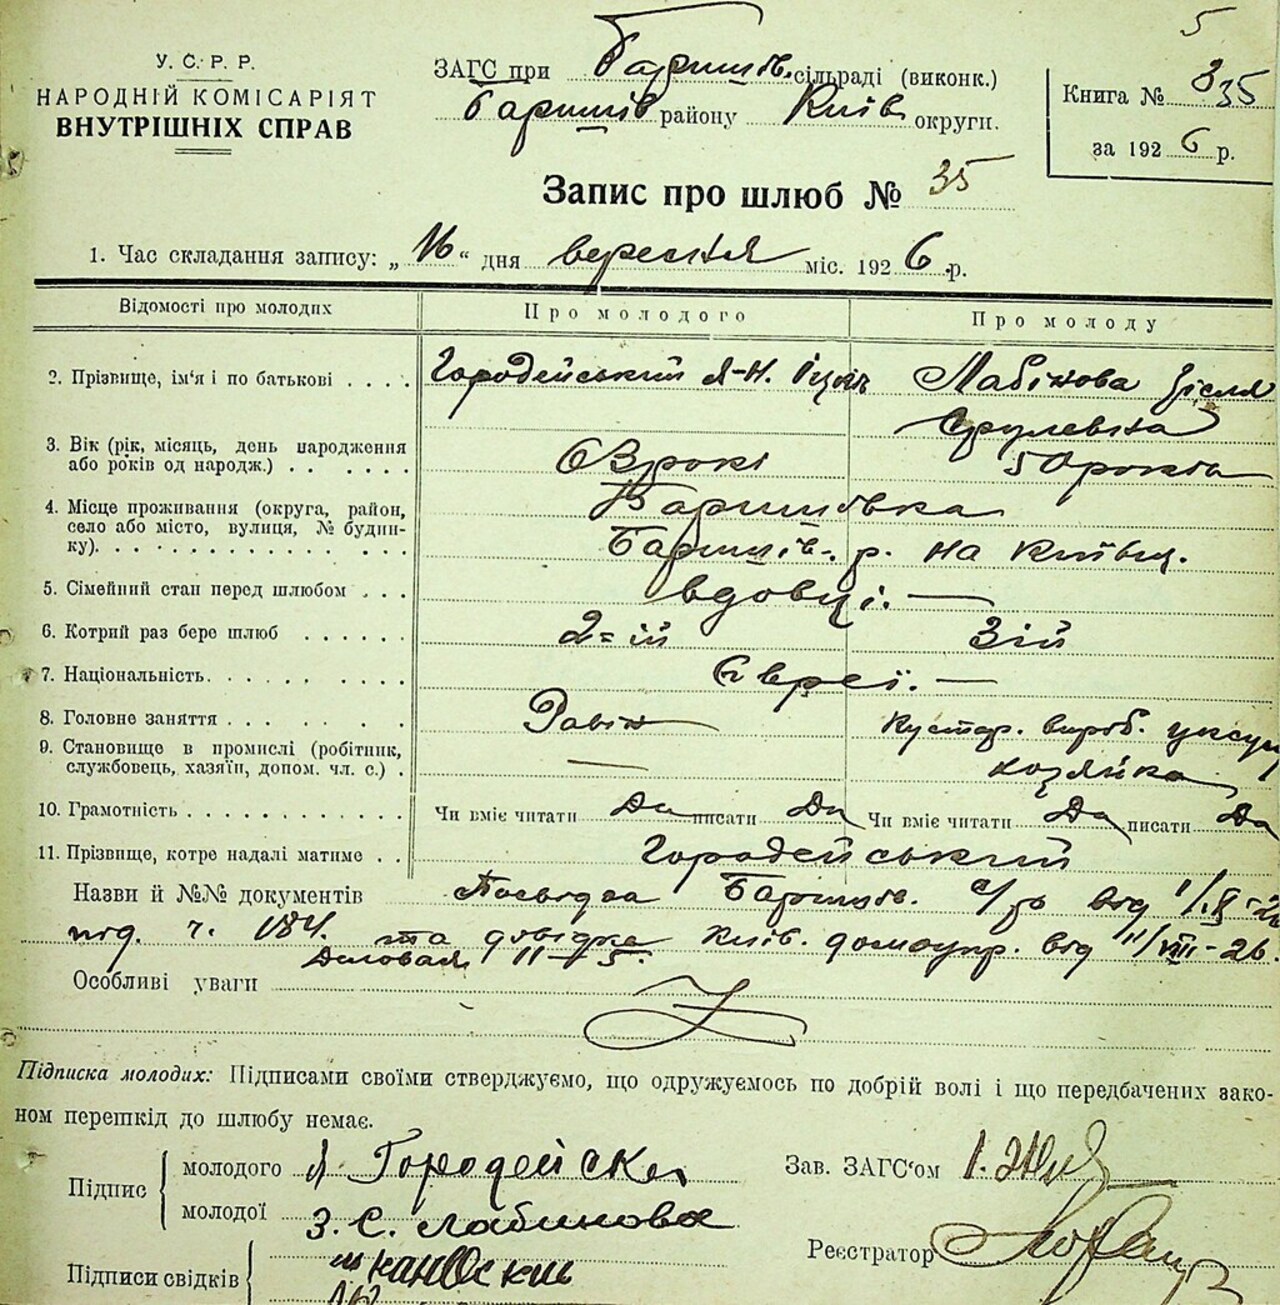 5
У. С. Р. Р.
НАРОДНІЙ КОМІСАРІЯТ
ВНУТРІШНІХ СПРАВ
ЗАГС при Баришів. сільраді (виконк.)
Баришів району Київ. округи.
Книга № 35
за 1926 р.
Запис про шлюб № 35
1. Час складання запису: „16“ дня вересня міс. 1926 р.
Відомості про молодих Про молодого Про молоду
2. Прізвище, ім‘я і по батькові . . . . Городейський Я-Н. Лабінова Зісля
Срулевна
3. Вік (рік, місяць, день народження
або років од народж.) . . . . . . 63 рокі 50 років
4. Місце проживання (округа, район,
село або місто, вулиця, № будин-
ку). Баришівка
Баришів. р. на Київщ.
5. Сімейний стан перед шлюбом . . . вдовці. —
6. Котрий раз бере шлюб . . . . . . 2=ій 3ій
7. Національність. Євреї. —
8. Головне заняття . . . . Равін Кустар. вироб. уксусу
9. Становище в промислі (робітник,
службовець, хазяїн, допом. чл. с.) . — хозяйка
10. Грамотність Чи вміє читати Да писати Да Чи вміє читати Да писати Да
11. Прізвище, котре надалі матиме . . Городейський
Назви й №№ документів Посвідка Баришів. с/ради від
під. ч. 184. та довідка Київ. домоупр. від 11/VIII-26.
Особливі уваги
Підписка молодих: Підписами своїми стверджуємо, що одружуємось по добрій волі і що передбачених зако-
ном перешкід до шлюбу немає.
Підпис
молодого Я Городейски
молодої З. С. Лабинова
Зав. ЗАГС‘ом
Реєстратор
Підписи свідків